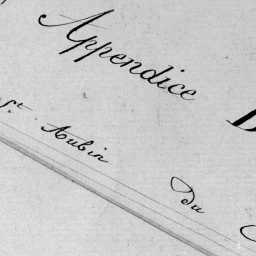 Appendice
St. Aubin du